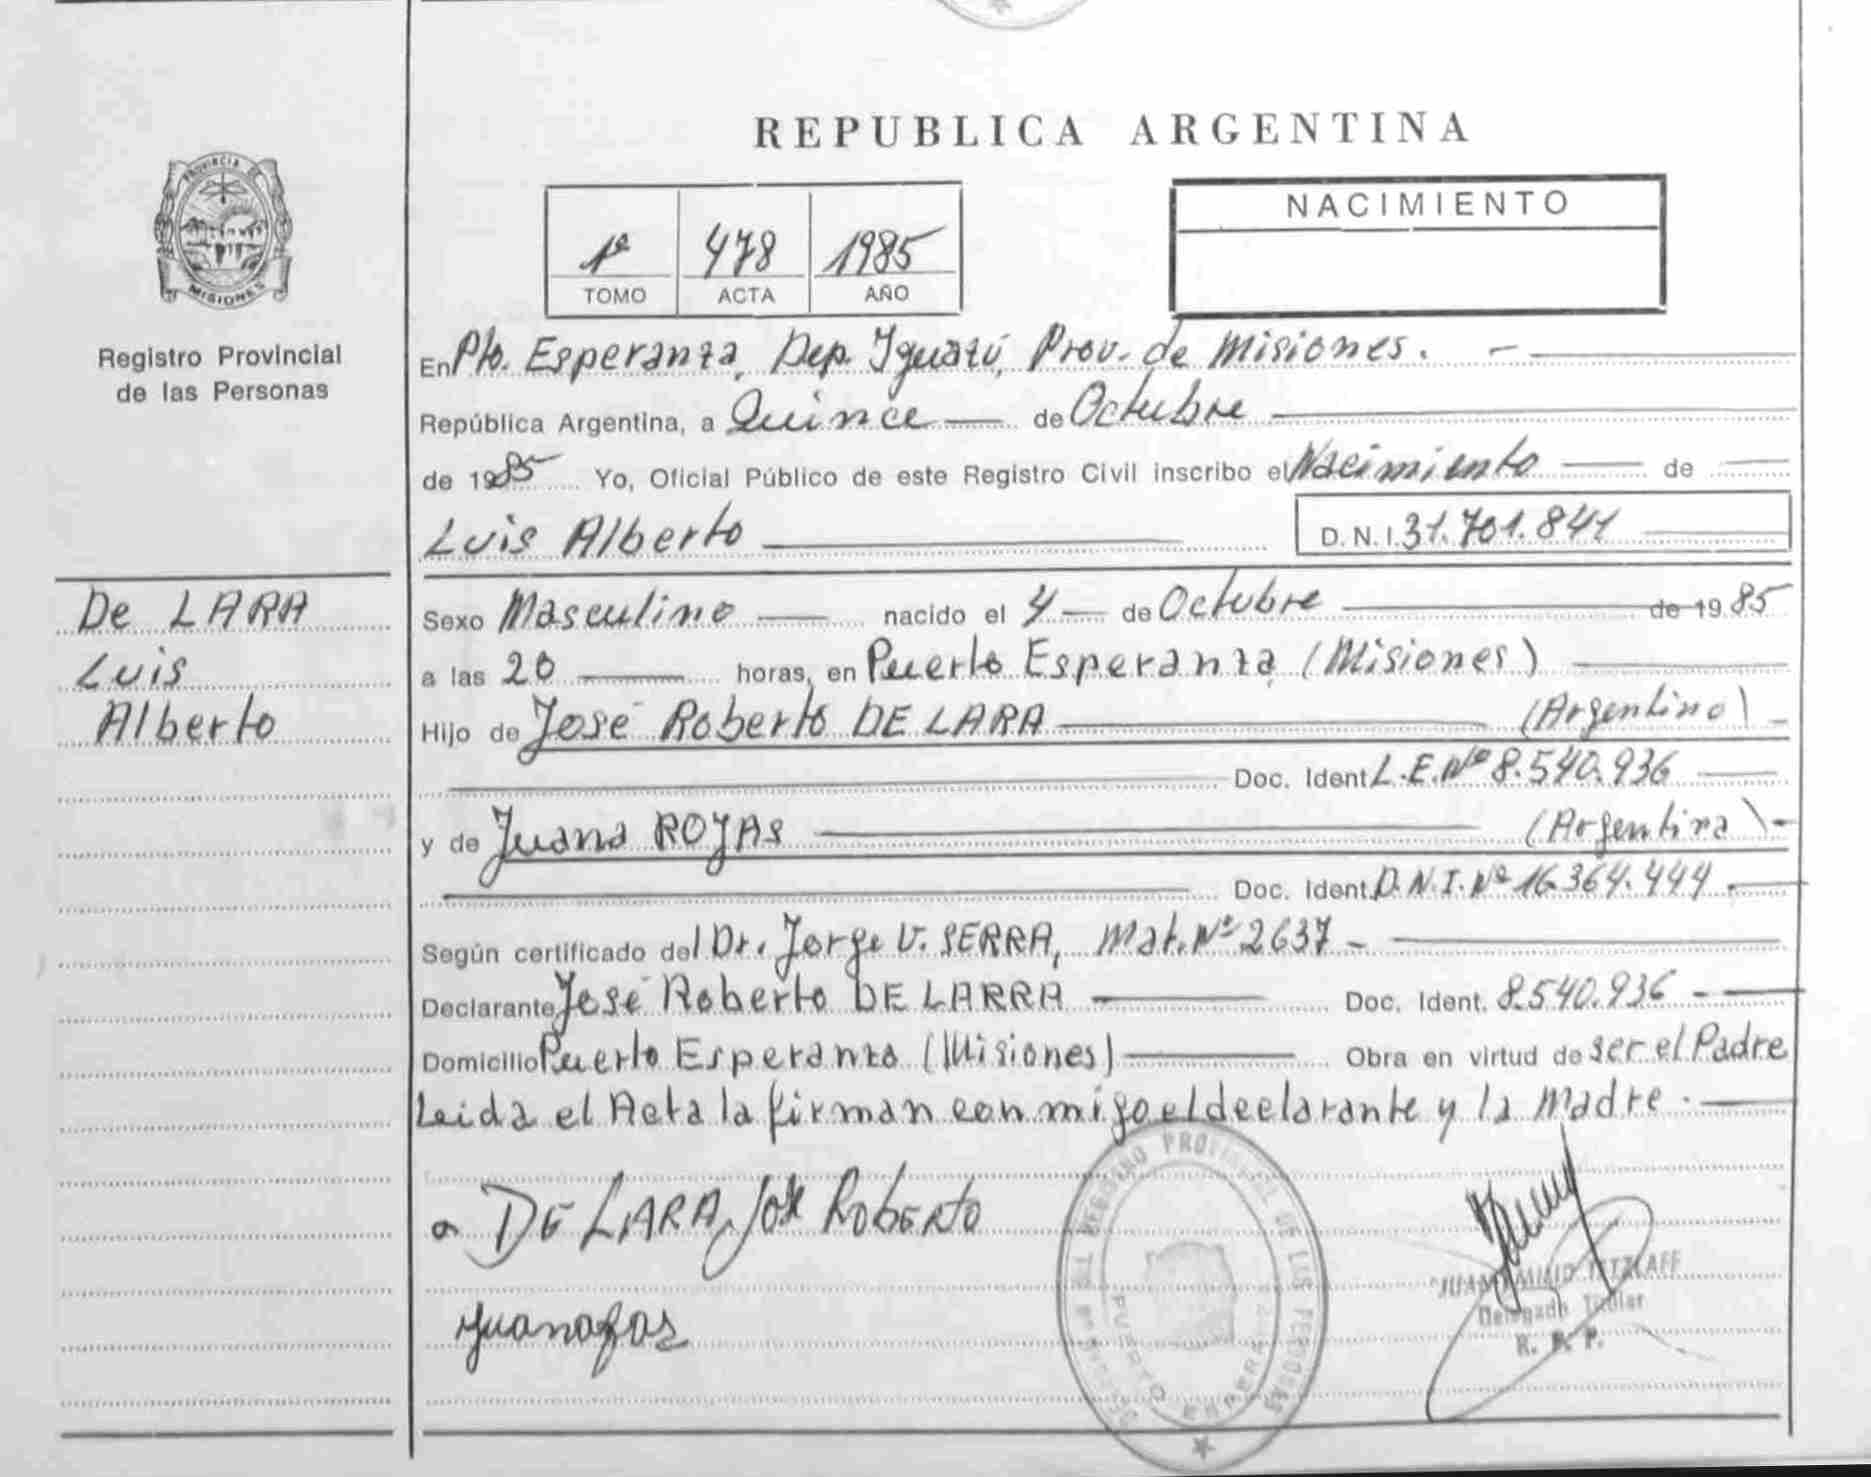 REPUBLICA ARGENTINA
PROVINCIA DE
MISIONES
Registro Provincial
de las Personas
1º 478 1985
TOMO ACTA AÑO
NACIMIENTO
En Pto. Esperanza, Dep. Iguazú, Prov. de Misiones. -
República Argentina, a Quince de Octubre
de 1985 Yo, Oficial Público de este Registro Civil inscribo el Nacimiento de
Luis Alberto D.N.I. 31.701.841
De LARA
Luis
Alberto
Sexo Masculino nacido el 4 de Octubre de 1985
a las 20 horas, en Puerto Esperanza (Misiones)
Hijo de José Roberto DE LARA (Argentino) -
Doc. Ident. L.E. Nº 8.540.936
y de Juana ROJAS (Argentina) -
Doc. Ident. D.N.I. Nº 16.364.444
Según certificado del Dr. Jorge V. SERRA, Mat. Nº 2637 -
Declarante José Roberto DE LARRA Doc. Ident. 8.540.936 -
Domicilio Puerto Esperanza (Misiones) Obra en virtud de ser el Padre
Leida el Acta la firman con migo el declarante y la Madre. -
DE LARA José Roberto
DEL REGISTRO PROVINCIAL DE LAS PERSONAS
PUERTO ESPERANZA
TETZLAFF
Delegado Titular
R. P. P.